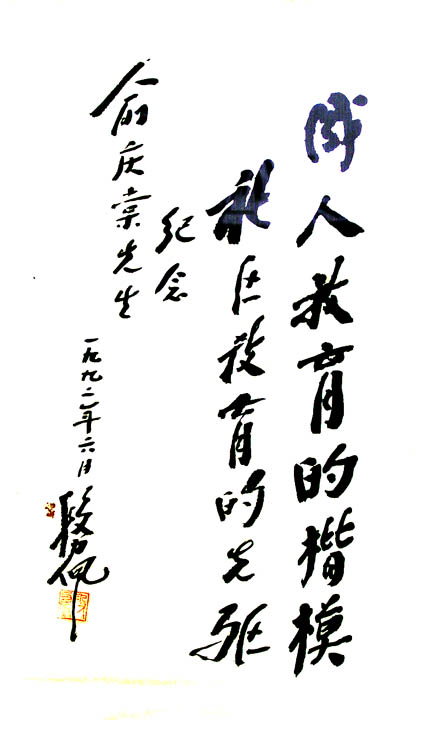 成人教育的楷模
社区教育的先驱
纪念
俞庆棠先生
一九九二年六月
段力佩